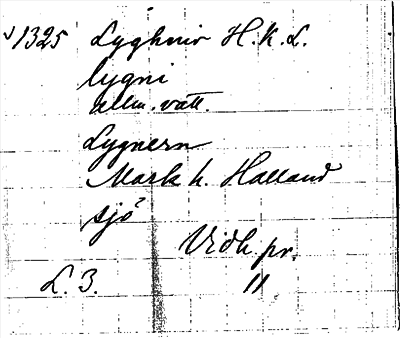 √1325 Lyghnir H.K.L.
lygni
allm. vatt.
Lygnern
Mark h. Halland
sjö
Vidh. pr.
L. 3. 11